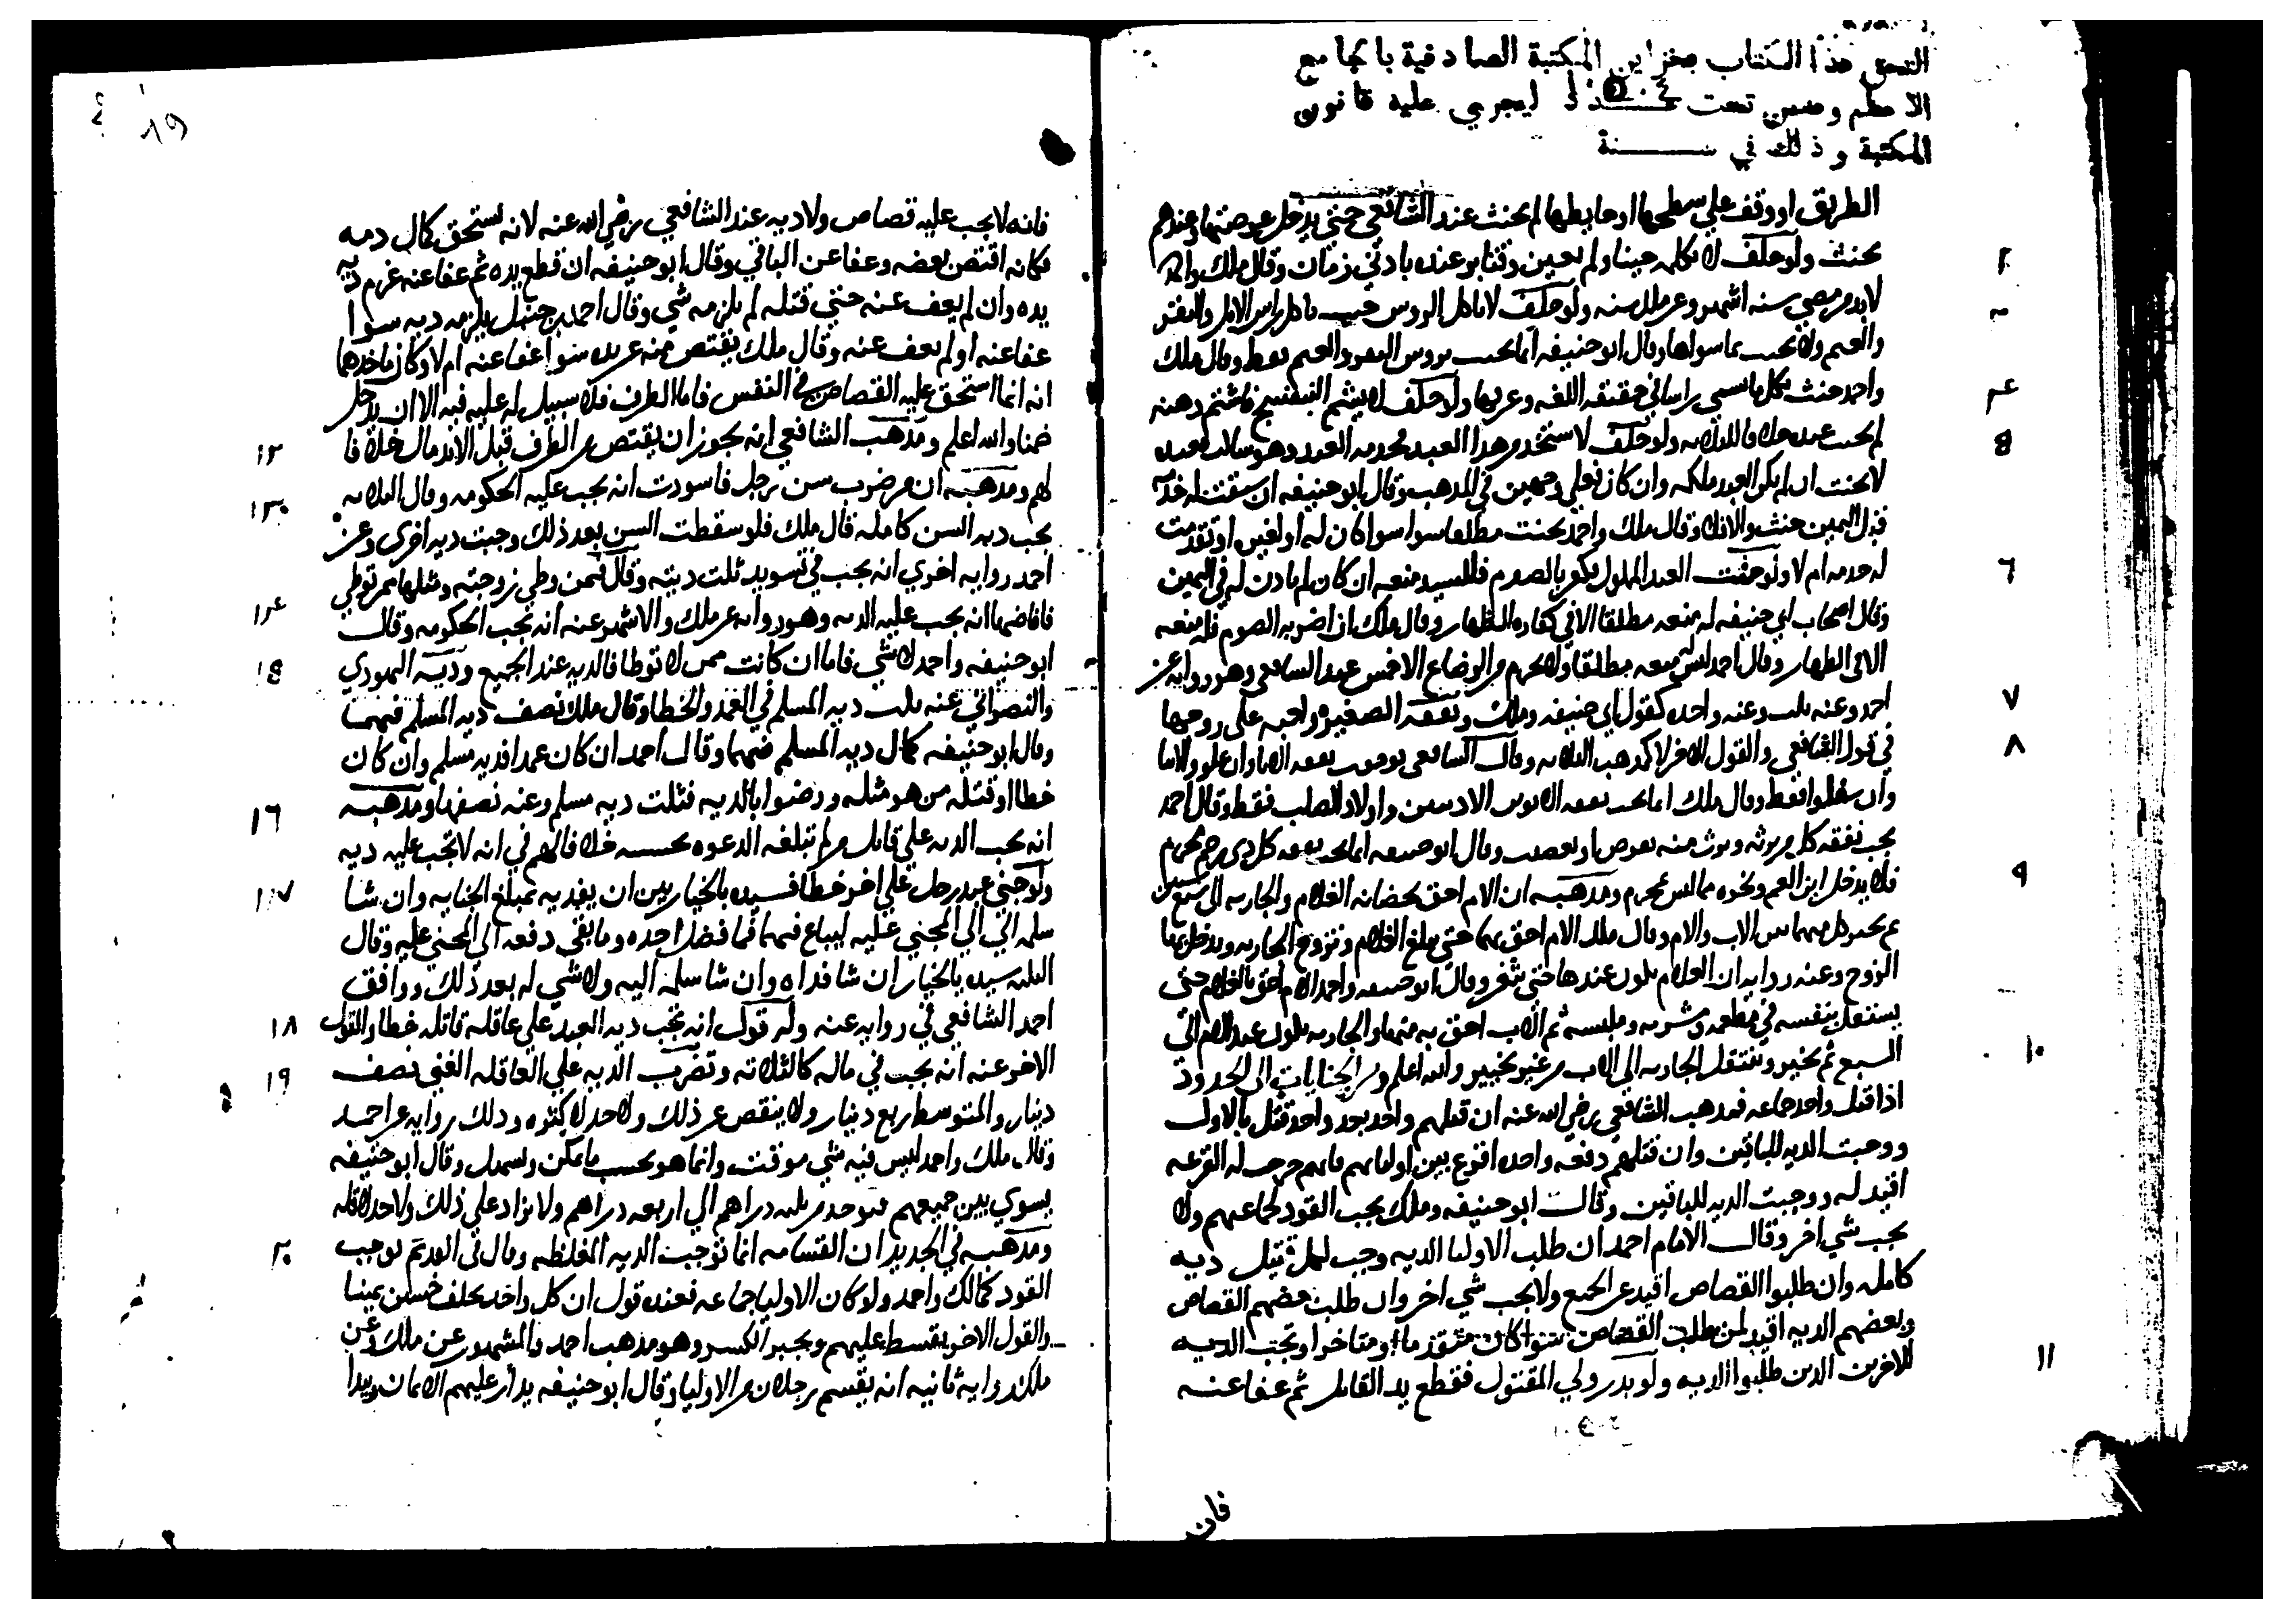 التحق هذا الكتاب بخزاين المكتبة الصادقية بالجامع
الاعظم وحبس تحت ليجري عليه قانون
المكتبة وذلك في سنة
الطريق او وقف علي سطحها او حايطها لم يحنث عند الشافعي حتي يدخل عرصتها وعندهم
٢ يحنث ولو حلف لا يكلمه حينا ولم يعين وقتا بر عنده بادني زمان وقال ملك
لابد من مضي سنه اشهر وعن ملك سنه ولو حلف لا ياكل الروس حنث باكل راس الابل والبقر
والغنم ولا يحنث بما سواها وقال ابو حنيفه انما يحنث بروس البقر والغنم فقط وقال ملك
٤ واحمد حنث بكل ما يسمي راسا في حقيقه اللغه وعرفها ولو حلف لا يشم البنفسج فاشتم دهنه
٥ لم يحنث عنده خلافا للثلاثه ولو حلف لا ستخدم هذا العبد فخدمه العبد وهو ساكت فعنده
لا يحنث ان لم يكن العبد ملكه وان كان فعلي وجهين في المذهب وقال ابو حنيفه ان سبقت له خدمه
قبل اليمين حنث والا فلا وقال ملك واحمد يحنث مطلقا سوا كان له او لغيره او تقدمت
٦ له خدمه ام لا ولو حنث العبد المملوك يكفر بالصوم فللسيد منعه ان كان لم ياذن له في اليمين
وقال اصحاب ابي حنيفه له منعه مطلقا الا في كفاره الظهار وقال ملك ان اضر به الصوم فله منعه
الا في الظهار وقال احمد ليس له منعه مطلقا ولا يحرم من الرضاع الا خمس عند الشافعي وهو روايه عن
٧ احمد وعنه ثلث وعنه واحده كقول ابي حنيفه وملك ونفقه الصغيره واجبه على زوجها
٨ في قول الشافعي والقول الاخر لا كمذهب الثلاثه وقال الشافعي بوجوب نفقه الابا وان علو والابنا
وان سفلوا فقط وقال ملك انما تجب نفقه الابوين الادنين واولاد الصلب فقط وقال احمد
يجب نفقه كل من يرثه ويورث منه بفرض او تعصيب وقال ابو حنيفه انما تجب نفقه كل ذي رحم محرم
٩ فلا يدخل ابن العم ونحوه مما ليس بمحرم ومذهبه ان الام احق بحضانه الغلام والجاريه الى سبع سنين
ثم يخير كل منهما بين الاب والام وقال ملك الام احق بهما حتي يبلغ الغلام وتزوج الجاريه ويدخل بها
الزوج وعنه روايه ان الغلام يكون عندها حتى يثغر وقال ابو حنيفه واحمد الام احق بالغلام حتى
يستقل بنفسه في مطعمه ومشربه وملبسه ثم الاب احق به منها والجاريه يكون عند الام الي
١٠ السبع ثم تخير وتنتقل الجاريه الي الاب من غير تخيير والله اعلم ومن الجنايات الى الحدود
اذا قتل واحد جماعه فمذهب الشافعي رضي الله عنه ان قتلهم واحد بعد واحد قتل بالاول
ووجبت الديه للباقين وان قتلهم دفعه واحده اقرع بين اوليائهم فايهم خرجت له القرعه
اقيد له ووجبت الديه للباقين وقال ابو حنيفه وملك يجب القود لجماعتهم ولا
يجب شي اخر وقال الامام احمد ان طلب الاوليا الديه وجب لكل قتيل ديه
كامله وان طلبوا القصاص اقيد عن الجميع ولا يجب شي اخر وان طلب بعضهم القصاص
وبعضهم الديه اقيد لمن طلب القصاص سوا كان متقدما او متاخرا وتجب الديه
١١ للاخرين الذين طلبوا الديه ولو بدر ولي المقتول فقطع يد القاتل ثم عفا عنه
فانه
١٩
فانه لا يجب عليه قصاص ولا ديه عند الشافعي رضي الله عنه لانه استحق كال دمه
فكانه اقتص بعضه وعفا عن الباقي وقال ابو حنيفه ان قطع يده ثم عفا عنه غرم ديه
يده وان لم يعف عنه حتي قتله لم يلزمه شي وقال احمد بن حنبل يلزمه ديه سوا
عفا عنه او لم يعف عنه وقال ملك يقتص منه عن يده سوا عفا عنه ام لا وكان ماخذهما
انه انما استحق عليه القصاص في النفس فاما الطرف فلا سبيل له عليه فيه الا ان يدخل
١٢ ضمنا والله اعلم ومذهب الشافعي انه يجوز ان يقتص من الطرف قبل الاندمال خلافا
١٣ لهم ومذهبه ان من ضرب سن رجل فاسودت انه يجب عليه الحكومه وقال الثلاثه
يجب ديه السن كامله قال ملك فلو سقطت السن بعد ذلك وجبت ديه اخرى وعن
احمد روايه اخري انه يجب في تسويد ثلث ديته وقال فيمن وطي زوجته ومثلها من توطي
١٤ فافاضها انه يجب عليه الديه وهو روايه عن ملك والاشهر عنه انه تجب الحكومه وقال
١٥ ابو حنيفه واحمد لا شي فاما ان كانت ممن لا توطا فالديه عند الجميع وديه اليهودي
والنصراني عنده ثلث ديه المسلم في العمد والخطا وقال ملك نصف ديه المسلم فيهما
وقال ابو حنيفه كال ديه المسلم فيهما وقال احمد ان كان عمدا فديه مسلم وان كان
١٦ خطا او قتله من هو مثله ورضوا بالديه فثلث ديه مسلم وعنه نصفها ومذهبه
انه يجب الديه علي قاتل من لم تبلغه الدعوه خلافا لهم في انه لا تجب عليه ديه
١٧ ولو جني عبد رجل علي اخر خطا فسيده بالخيار بين ان يفديه بمبلغ الجنايه وان شا
سلمه الي المجني عليه ليباع فيها فما فضل اخذه وما بقي دفعه الي المجني عليه وقال
الثلثه سيده بالخيار ان شا فداه وان شا سلمه اليه ولا شي له بعد ذلك ووافق
١٨ احمد الشافعي في روايه عنه وله قول انه تجب ديه العبد علي عاقله قاتله خطا والقول
١٩ الاخر عنه انه يجب في ماله كالثلاثه وتضرب الديه علي العاقله الغني نصف
دينار والمتوسط ربع دينار ولا ينقص عن ذلك ولا حد لاكثره وذلك روايه عن احمد
وقال ملك واحمد ليس فيه شي موقت وانما هو بحسب ما يمكن ويسهل وقال ابو حنيفه
يسوي بين جميعهم فيوخذ من ثلثه دراهم الي اربعه دراهم ولا يزاد علي ذلك ولا حد لاقله
٢٠ ومذهبه في الجديد ان القسامه انما توجب الديه المغلظه وقال في القديم توجب
القود كمالك واحمد ولو كان الاوليا جماعه فعنده قول ان كل واحد يحلف خمسين يمينا
والقول الاخر يقسط عليهم ويجبر الكسر وهو مذهب احمد والمشهور عن ملك وعن
ملك روايه ثانيه انه يقسم رجلان من الاوليا وقال ابو حنيفه يدار عليهم الايمان ويبدا